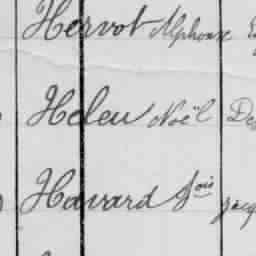 Hervot Alphonse
Heleu Noël De
Havard Fois Jacq